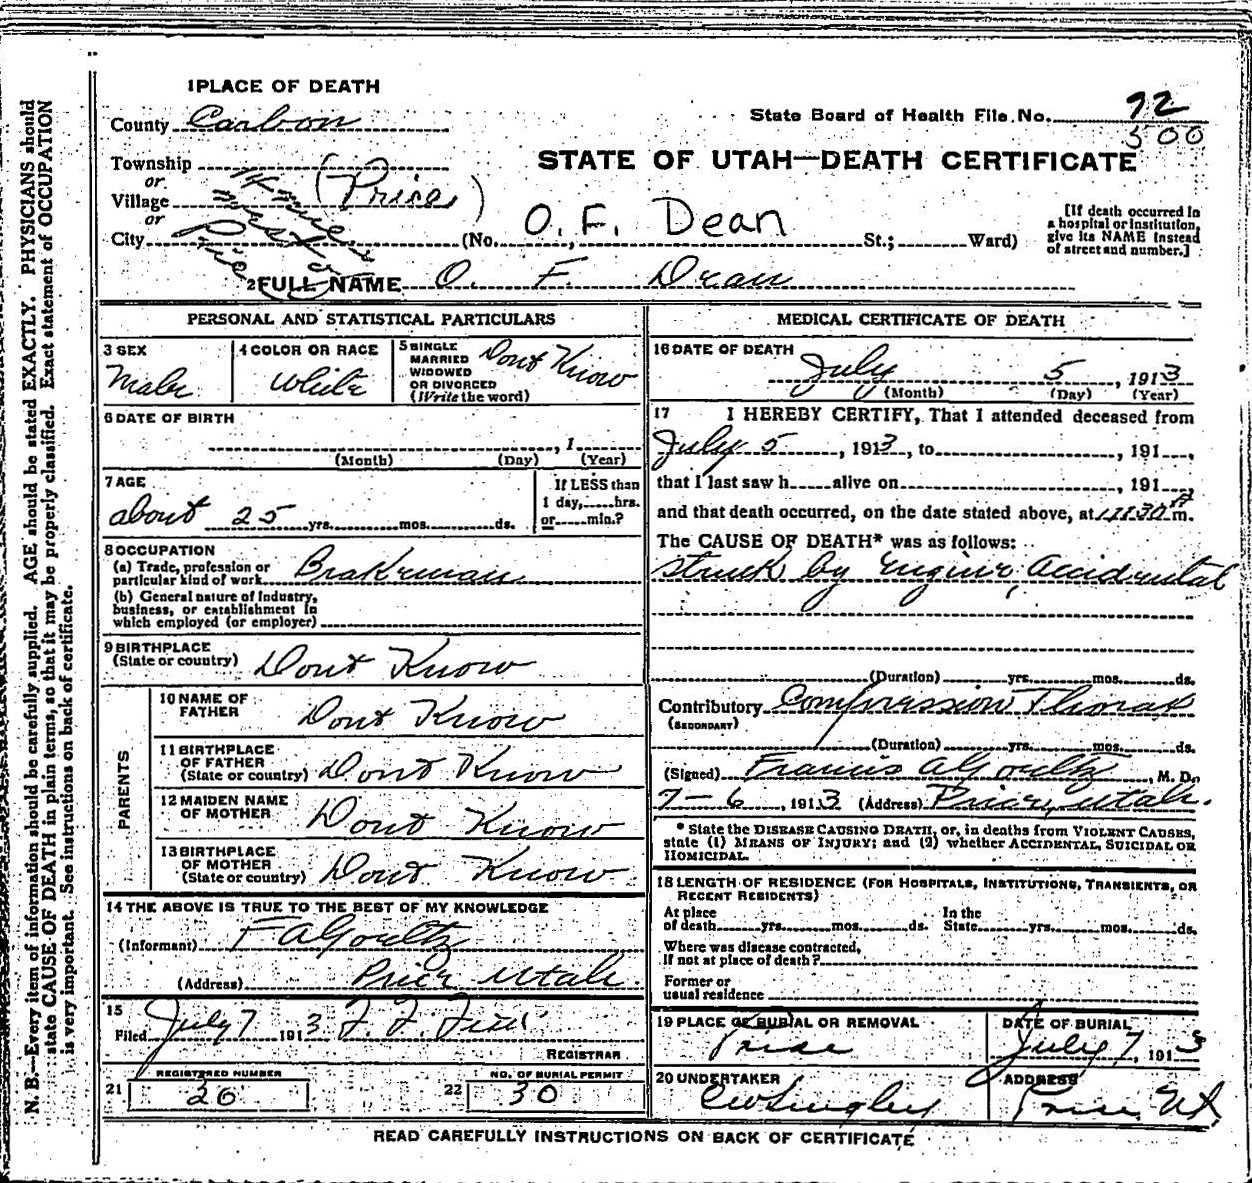 1 PLACE OF DEATH
County Carbon
State Board of Health File No. 92
500
Township
or
Village (Price)
or
City Price
STATE OF UTAH—DEATH CERTIFICATE
(No. O. F. Dean St.; Ward)
[If death occurred in
a hospital or institution,
give its NAME instead
of street and number.]
2 FULL NAME O. F. Dean
PERSONAL AND STATISTICAL PARTICULARS
3 SEX
Male
4 COLOR OR RACE
White
5 SINGLE
MARRIED
WIDOWED
OR DIVORCED
(Write the word)
Dont Know
6 DATE OF BIRTH
, 1
(Month) (Day) (Year)
7 AGE
about 25 yrs. mos. ds.
If LESS than
1 day, hrs.
or min.?
8 OCCUPATION
(a) Trade, profession or
particular kind of work Brakeman
(b) General nature of industry,
business, or establishment in
which employed (or employer)
9 BIRTHPLACE
(State or country) Dont Know
PARENTS
10 NAME OF
FATHER Dont Know
11 BIRTHPLACE
OF FATHER
(State or country) Dont Know
12 MAIDEN NAME
OF MOTHER Dont Know
13 BIRTHPLACE
OF MOTHER
(State or country) Dont Know
14 THE ABOVE IS TRUE TO THE BEST OF MY KNOWLEDGE
(Informant) F A Goeltz
(Address) Price Utah.
15
Filed July 7 1913
REGISTRAR
REGISTERED NUMBER
21 26
NO. OF BURIAL PERMIT
22 30
MEDICAL CERTIFICATE OF DEATH
16 DATE OF DEATH
July 5, 1913
(Month) (Day) (Year)
17 I HEREBY CERTIFY, That I attended deceased from
July 5, 1913, to , 191 ,
that I last saw h alive on , 191 ,
and that death occurred, on the date stated above, at 11:30 A m.
The CAUSE OF DEATH* was as follows:
Struck by Engine, Accidental
(Duration) yrs. mos. ds.
Contributory Compression Thorax
(SECONDARY)
(Duration) yrs. mos. ds.
(Signed) Francis A Goeltz, M. D.
7-6, 1913 (Address) Price, Utah.
* State the DISEASE CAUSING DEATH, or, in deaths from VIOLENT CAUSES,
state (1) MEANS OF INJURY; and (2) whether ACCIDENTAL, SUICIDAL OR
HOMICIDAL.
18 LENGTH OF RESIDENCE (FOR HOSPITALS, INSTITUTIONS, TRANSIENTS, OR
RECENT RESIDENTS)
At place
of death yrs. mos. ds.
In the
State yrs. mos. ds.
Where was disease contracted,
if not at place of death?
Former or
usual residence
19 PLACE OF BURIAL OR REMOVAL
Price
DATE OF BURIAL
July 7, 1913
20 UNDERTAKER
ADDRESS
Price, Ut.
READ CAREFULLY INSTRUCTIONS ON BACK OF CERTIFICATE
N. B.—Every item of information should be carefully supplied. AGE should be stated EXACTLY. PHYSICIANS should
state CAUSE OF DEATH in plain terms, so that it may be properly classified. Exact statement of OCCUPATION
is very important. See instructions on back of certificate.